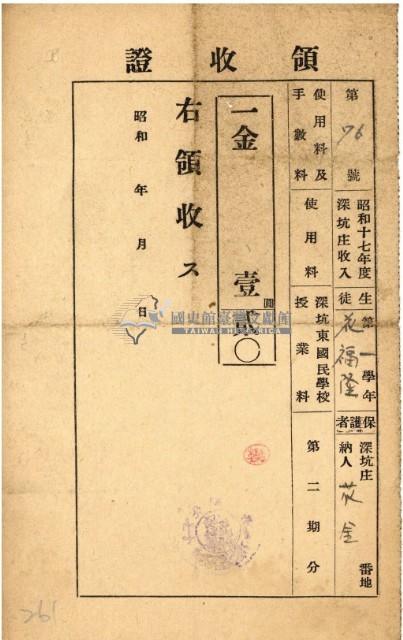 領收證
第76號
昭和十七年度
深坑庄收入
生徒 第一學年
花福隆
保護者
深坑庄 番地
納人 花金
使用料及
手數料
使用料
深坑東國民學校
授業料
第二期分
一金 壹圓貳〇
右領收ス
昭和 年 月 日
國史館臺灣文獻館
TAIWAN HISTORICA
261